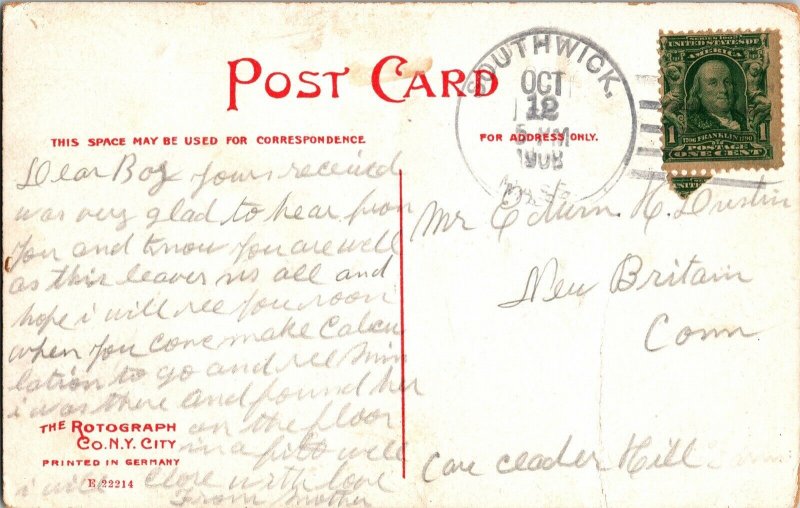 POST CARD
THIS SPACE MAY BE USED FOR CORRESPONDENCE
FOR ADDRESS ONLY.
SOUTHWICK,
OCT
12
5 PM
1908
MASS
SERIES 1902
UNITED STATES OF
AMERICA
1706 FRANKLIN 1790
1 1
POSTAGE
ONE CENT
Dear Boy yours received
was very glad to hear from
you and know you are well
as this leaves us all and
hope i will see you soon
when you come make Calcu
lation to go and see
i was there and found her
on the floor
in a fitt well
i will close with love
From Mother
THE ROTOGRAPH
CO. N.Y. CITY
PRINTED IN GERMANY
E 22214
Mr Edwin H. Dustin
New Britain
Conn
Care Hill